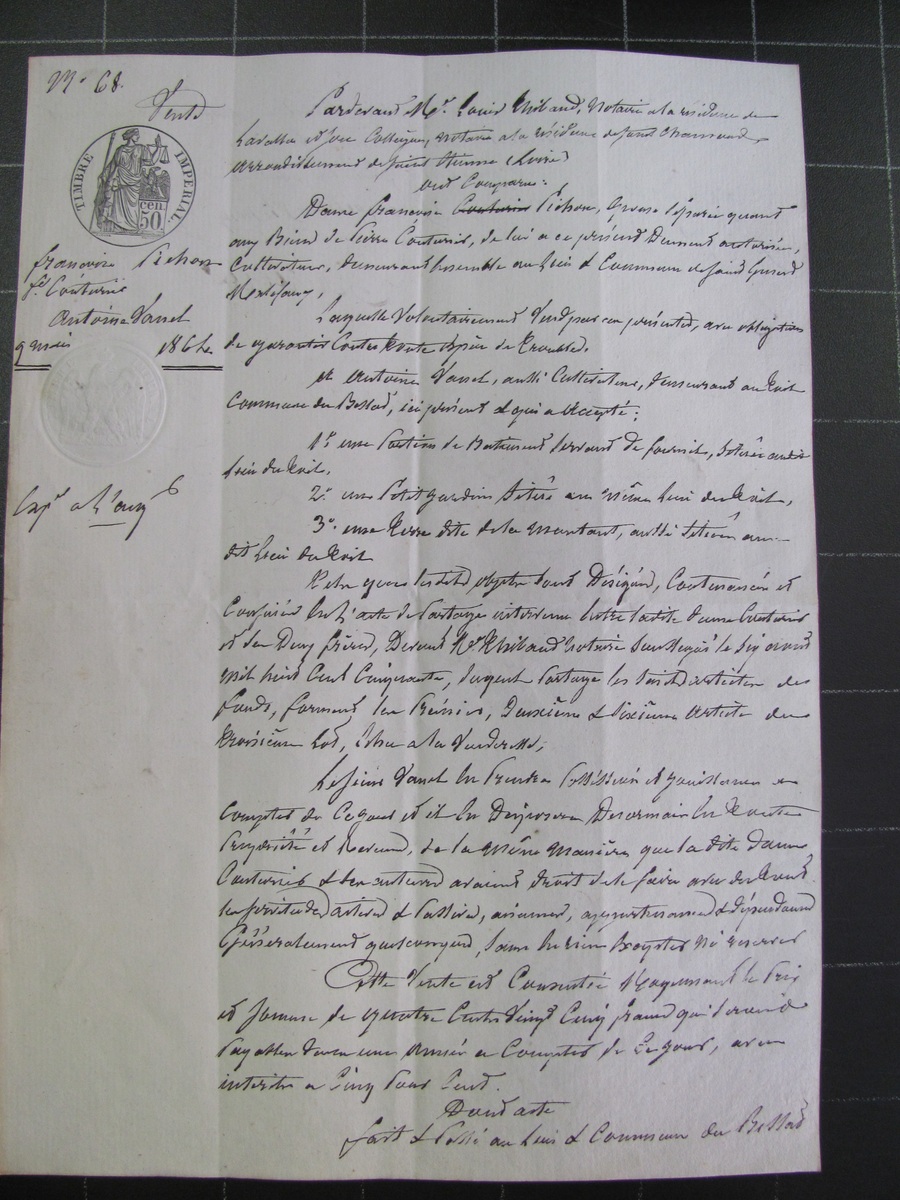 N° 68.
Vente
TIMBRE IMPERIAL
50 cen
françoise Pichon
fe Couturié
Antoine Vanel
9 mars 1864
Expé
Pardevant Me Louis Thiband, Notaire a la résidence de
et son Collègue, notaire a la résidence de Saint Chamond
arrondissement de Saint Etienne (Loire)
ont Comparu:
Dame françoise Couturié Pichon, épouse séparée quant
aux Biens de Pierre Couturié, de lui a ce présent Dument autorisée,
Cultivateurs, demeurant Ensemble au lieu & Commune de Saint Genest
Malifaux,
Laquelle Volontairement Vend par ces présentes, avec obligation
de garantir Contre toute Espèce de troubles,
a Antoine Vanel, aussi Cultivateur, demeurant au toit
Commune du Bessat, ici présent & qui a accepté;
1° une Portion de Batiment servant de fournil, située au dit
lieu du toit,
2° une Petit jardin située au même lieu du toit,
3° une terre dite de la aussi située au
dit lieu du toit
tels que lesdits objets sont Désignés, Contenancés et
Confinés En l'acte de Partage intervenu Entre la dite dame Couturié
et ses Deux frères, Devant Me Thiband notaire Soussigné le six avril
mil huit Cent Cinquante, Duquel Partage les susdits articles de
fonds, forment les Premier, Deuxième & sixième article du
troisième Lot, Echu a la Venderesse,
Le sieur Vanel En Prendra Possession et jouissance a
Compter de Ce jour et il En Disposera Desormais En toute
Propriété et Revenu, de la même Manière que la dite dame
Couturié & ses auteurs avaient droit de le faire avec Entrées
les servitudes actives & Passives, aisances, appartenances & dépendances
Généralement quelconques, sans En rien Excepter Ni reserver
Cette Vente est Consentie Moyennant le Prix
et somme de quatre Cents Vingt Cinq francs qui seront
Payables dans une Année a Compter de Ce jour, avec
interêts a Cinq Pour Cent.
Dont acte
fait & Passé au lieu & Commune du Bessat